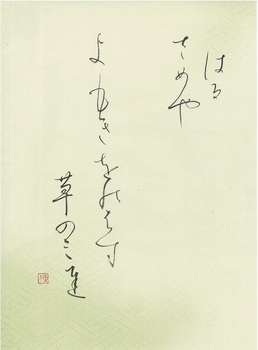 はる
さめや
よもきをのはす
草のみ道